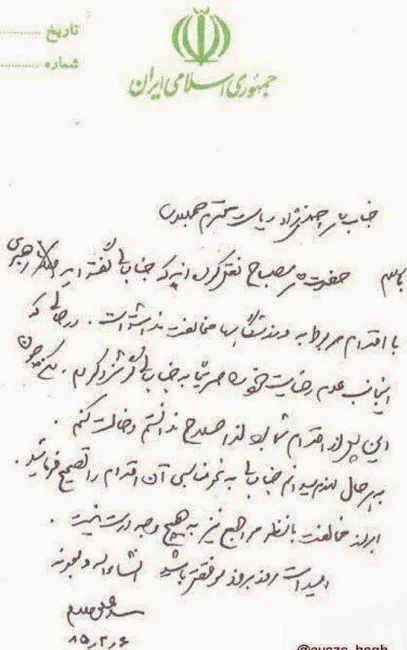 تاریخ ............
شماره ............
جمهوری اسلامی ایران
جناب آقای احمدی نژاد ریاست محترم جمهوری
باسلام حضرت آقای مصباح نقل کردند که جنابعالی گفته اید رهبری
با اقدام مربوط به ورزشگاهها مخالفت نداشته است . در حالی که
اینجانب عدم رضایت خود را صریحا به جنابعالی گوشزد کردم .
این پس از اقدام شما بود لذا صلاح ندانستم دخالت کنم .
به هر حال لازم میدانم جنابعالی به نحو مناسبی آن اقدام را تصحیح فرمائید .
ابراز مخالفت با نظر مراجع نیز به هیچ وجه درست نیست .
امید است روز بروز موفقتر باشید انشاءاله و بعونه
سید علی
۸۵٫۲٫۶
@avaze_hagh